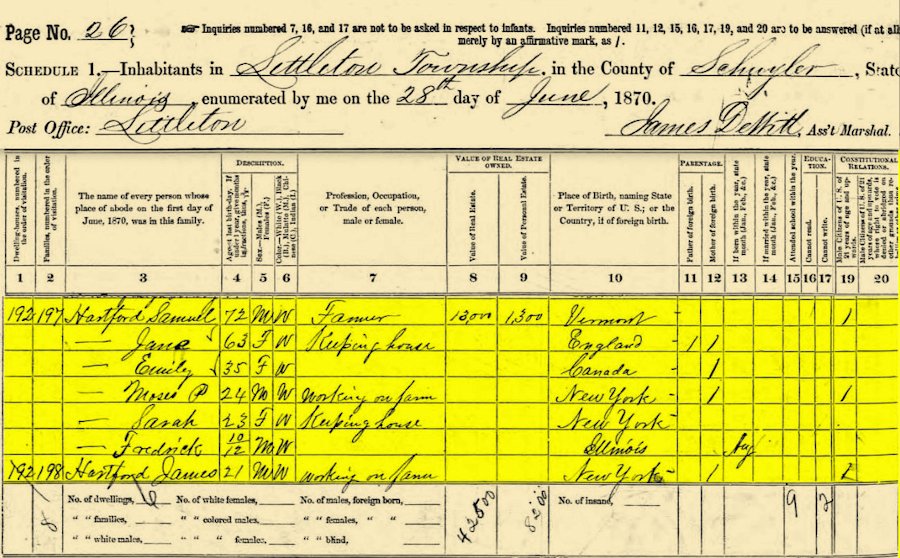 Page No. 26 Inquiries numbered 7, 16, and 17 are not to be asked in respect to infants. Inquiries numbered 11, 12, 15, 16, 17, 19, and 20 are to be answered (if at all
merely by an affirmative mark, as /.
SCHEDULE 1.—Inhabitants in Littleton Township, in the County of Schuyler, State
of Illinois, enumerated by me on the 28th day of June, 1870.
Post Office: Littleton James DeWitt, Ass't Marshal.
Dwelling-houses, numbered in the order of visitation.
Families, numbered in the order of visitation.
The name of every person whose place of abode on the first day of June, 1870, was in this family.
DESCRIPTION.
Age at last birth-day. If under 1 year, give months in fractions, thus, 3/12
Sex.—Males (M.), Females (F.)
Color.—White (W.), Black (B.), Mulatto (M.), Chinese (C.), Indian (I.)
Profession, Occupation, or Trade of each person, male or female.
VALUE OF REAL ESTATE OWNED.
Value of Real Estate.
Value of Personal Estate.
Place of Birth, naming State or Territory of U. S.; or the Country, if of foreign birth.
PARENTAGE.
Father of foreign birth.
Mother of foreign birth.
If born within the year, state month (Jan., Feb., &c.)
If married within the year, state month (Jan., Feb., &c.)
Attended school within the year.
EDUCATION.
Cannot read.
Cannot write.
CONSTITUTIONAL RELATIONS.
Male Citizens of U. S. of 21 years of age and upwards.
1 2 3 4 5 6 7 8 9 10 11 12 13 14 15 16 17 19 20
192 197 Hartford Samuel 72 M W Farmer 13,000 1,300 Vermont - 1
— Jane 63 F W Keeping house England - 1 1
— Emily 35 F W Canada - 1
— Moses P 24 M W working on farm New York - 1 1
— Sarah 23 F W Keeping house New York -
— Fredrick 10/12 M W Illinois Aug
192 198 Hartford James 21 M W working on farm New York - 1 1
No. of dwellings, 6 No. of white females, No. of males, foreign born, 42500 8200 No. of insane, 9 2
8 " " families, " " colored males, " " females, " "
" " white males, " " " females, " " blind,